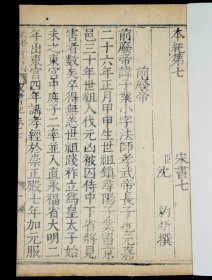 本紀第七　　宋書七
臣沈　約新撰
前廢帝
前廢帝諱子業小字法師孝武帝長子也元嘉
二十六年正月甲申生世祖鎮尋陽子業留京
邑三十年世祖入伐元凶被囚侍中下省將見
害者數矣卒得無恙世祖踐祚立爲皇太子始
未之東宮中庶子二率並入直永福省大明二
年出東宮四年講孝經於崇正殿七年加元服